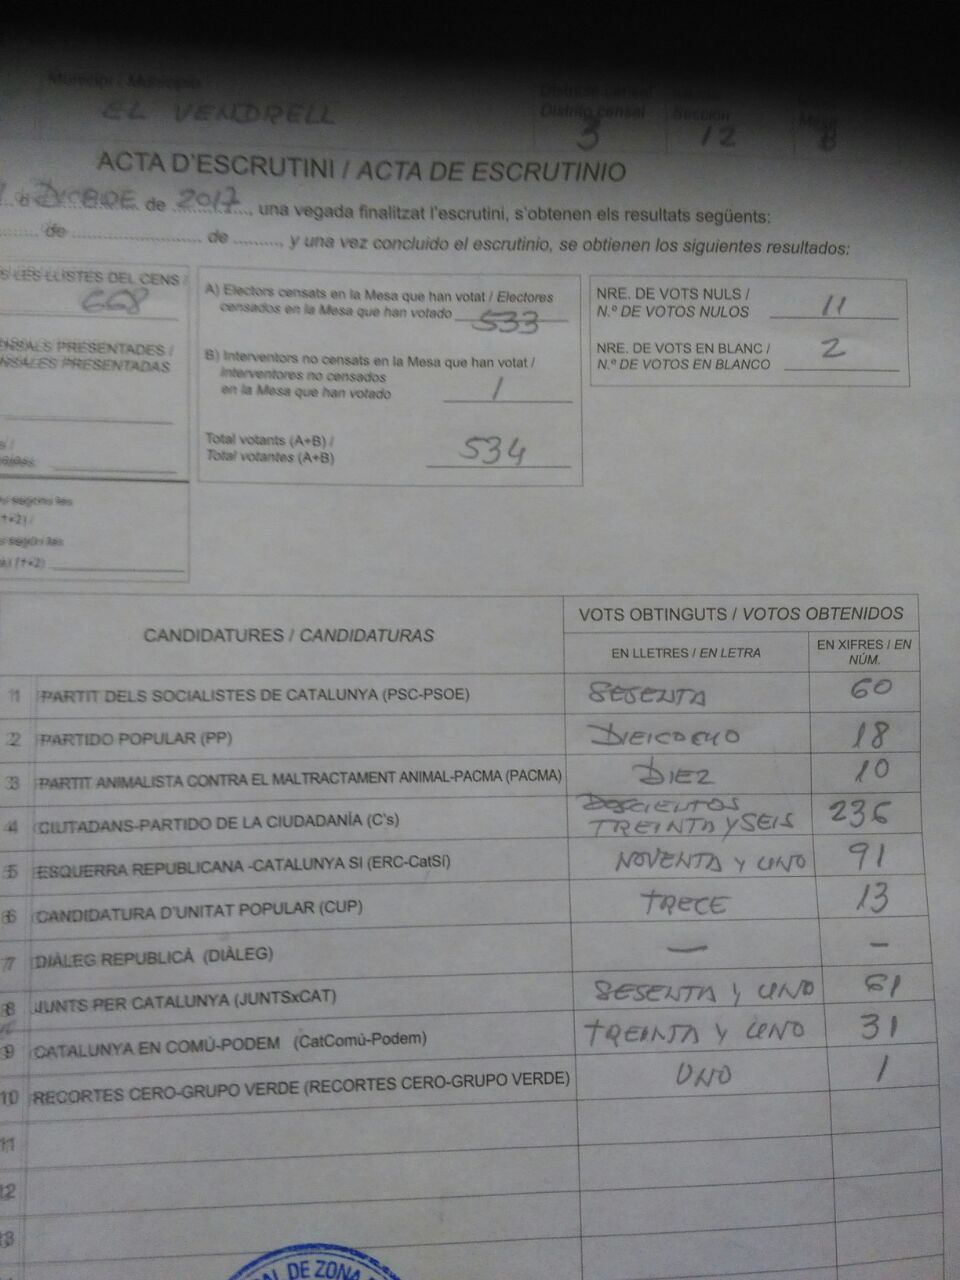 Municipi / Municipio
EL VENDRELL
Districte censal
Distrito censal
3
Sección
12
Mesa
B
ACTA D'ESCRUTINI / ACTA DE ESCRUTINIO
de 2017, una vegada finalitzat l'escrutini, s'obtenen els resultats següents:
de de , y una vez concluido el escrutinio, se obtienen los siguientes resultados:
S LES LLISTES DEL CENS /
668
PRESENTADES /
PRESENTADAS
(1+2) /
(1+2)
A) Electors censats en la Mesa que han votat / Electores
censados en la Mesa que han votado 533
B) Interventors no censats en la Mesa que han votat /
Interventores no censados
en la Mesa que han votado 1
Total votants (A+B) /
Total votantes (A+B) 534
NRE. DE VOTS NULS /
N.º DE VOTOS NULOS 11
NRE. DE VOTS EN BLANC /
N.º DE VOTOS EN BLANCO 2
CANDIDATURES / CANDIDATURAS
VOTS OBTINGUTS / VOTOS OBTENIDOS
EN LLETRES / EN LETRA
EN XIFRES / EN
NÚM.
1 PARTIT DELS SOCIALISTES DE CATALUNYA (PSC-PSOE) SESENTA 60
2 PARTIDO POPULAR (PP) DIEICOCHO 18
3 PARTIT ANIMALISTA CONTRA EL MALTRACTAMENT ANIMAL-PACMA (PACMA) DIEZ 10
4 CIUTADANS-PARTIDO DE LA CIUDADANÍA (C's) DOSCIENTOS
TREINTA Y SEIS 236
5 ESQUERRA REPUBLICANA -CATALUNYA SI (ERC-CatSí) NOVENTA Y UNO 91
6 CANDIDATURA D'UNITAT POPULAR (CUP) TRECE 13
7 DIÀLEG REPUBLICÀ (DIÀLEG) — –
8 JUNTS PER CATALUNYA (JUNTSxCAT) SESENTA Y UNO 61
9 CATALUNYA EN COMÚ-PODEM (CatComú-Podem) TREINTA Y UNO 31
10 RECORTES CERO-GRUPO VERDE (RECORTES CERO-GRUPO VERDE) UNO 1
11
12
13
DE ZONA